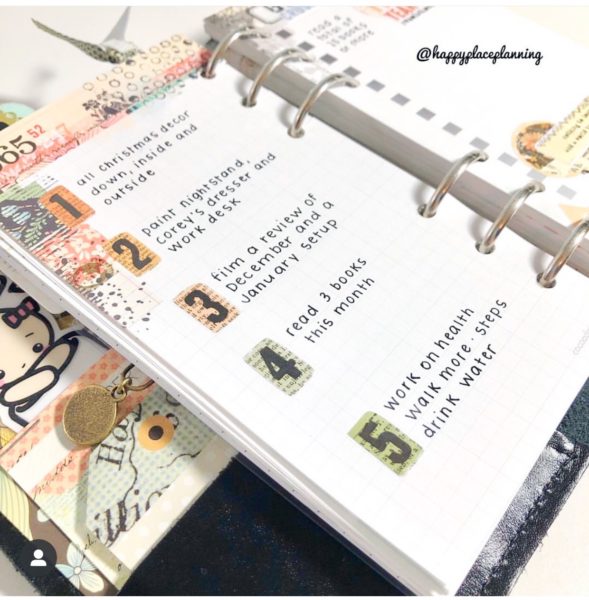 @happyplaceplanning
read a
total of
15 books
or more
365
52
1
all christmas decor
down, inside and
outside
2
paint nightstand,
corey's dresser and
work desk
3
film a review of
December and a
January setup
4
read 3 books
this month
5
work on health
walk more · steps
drink water